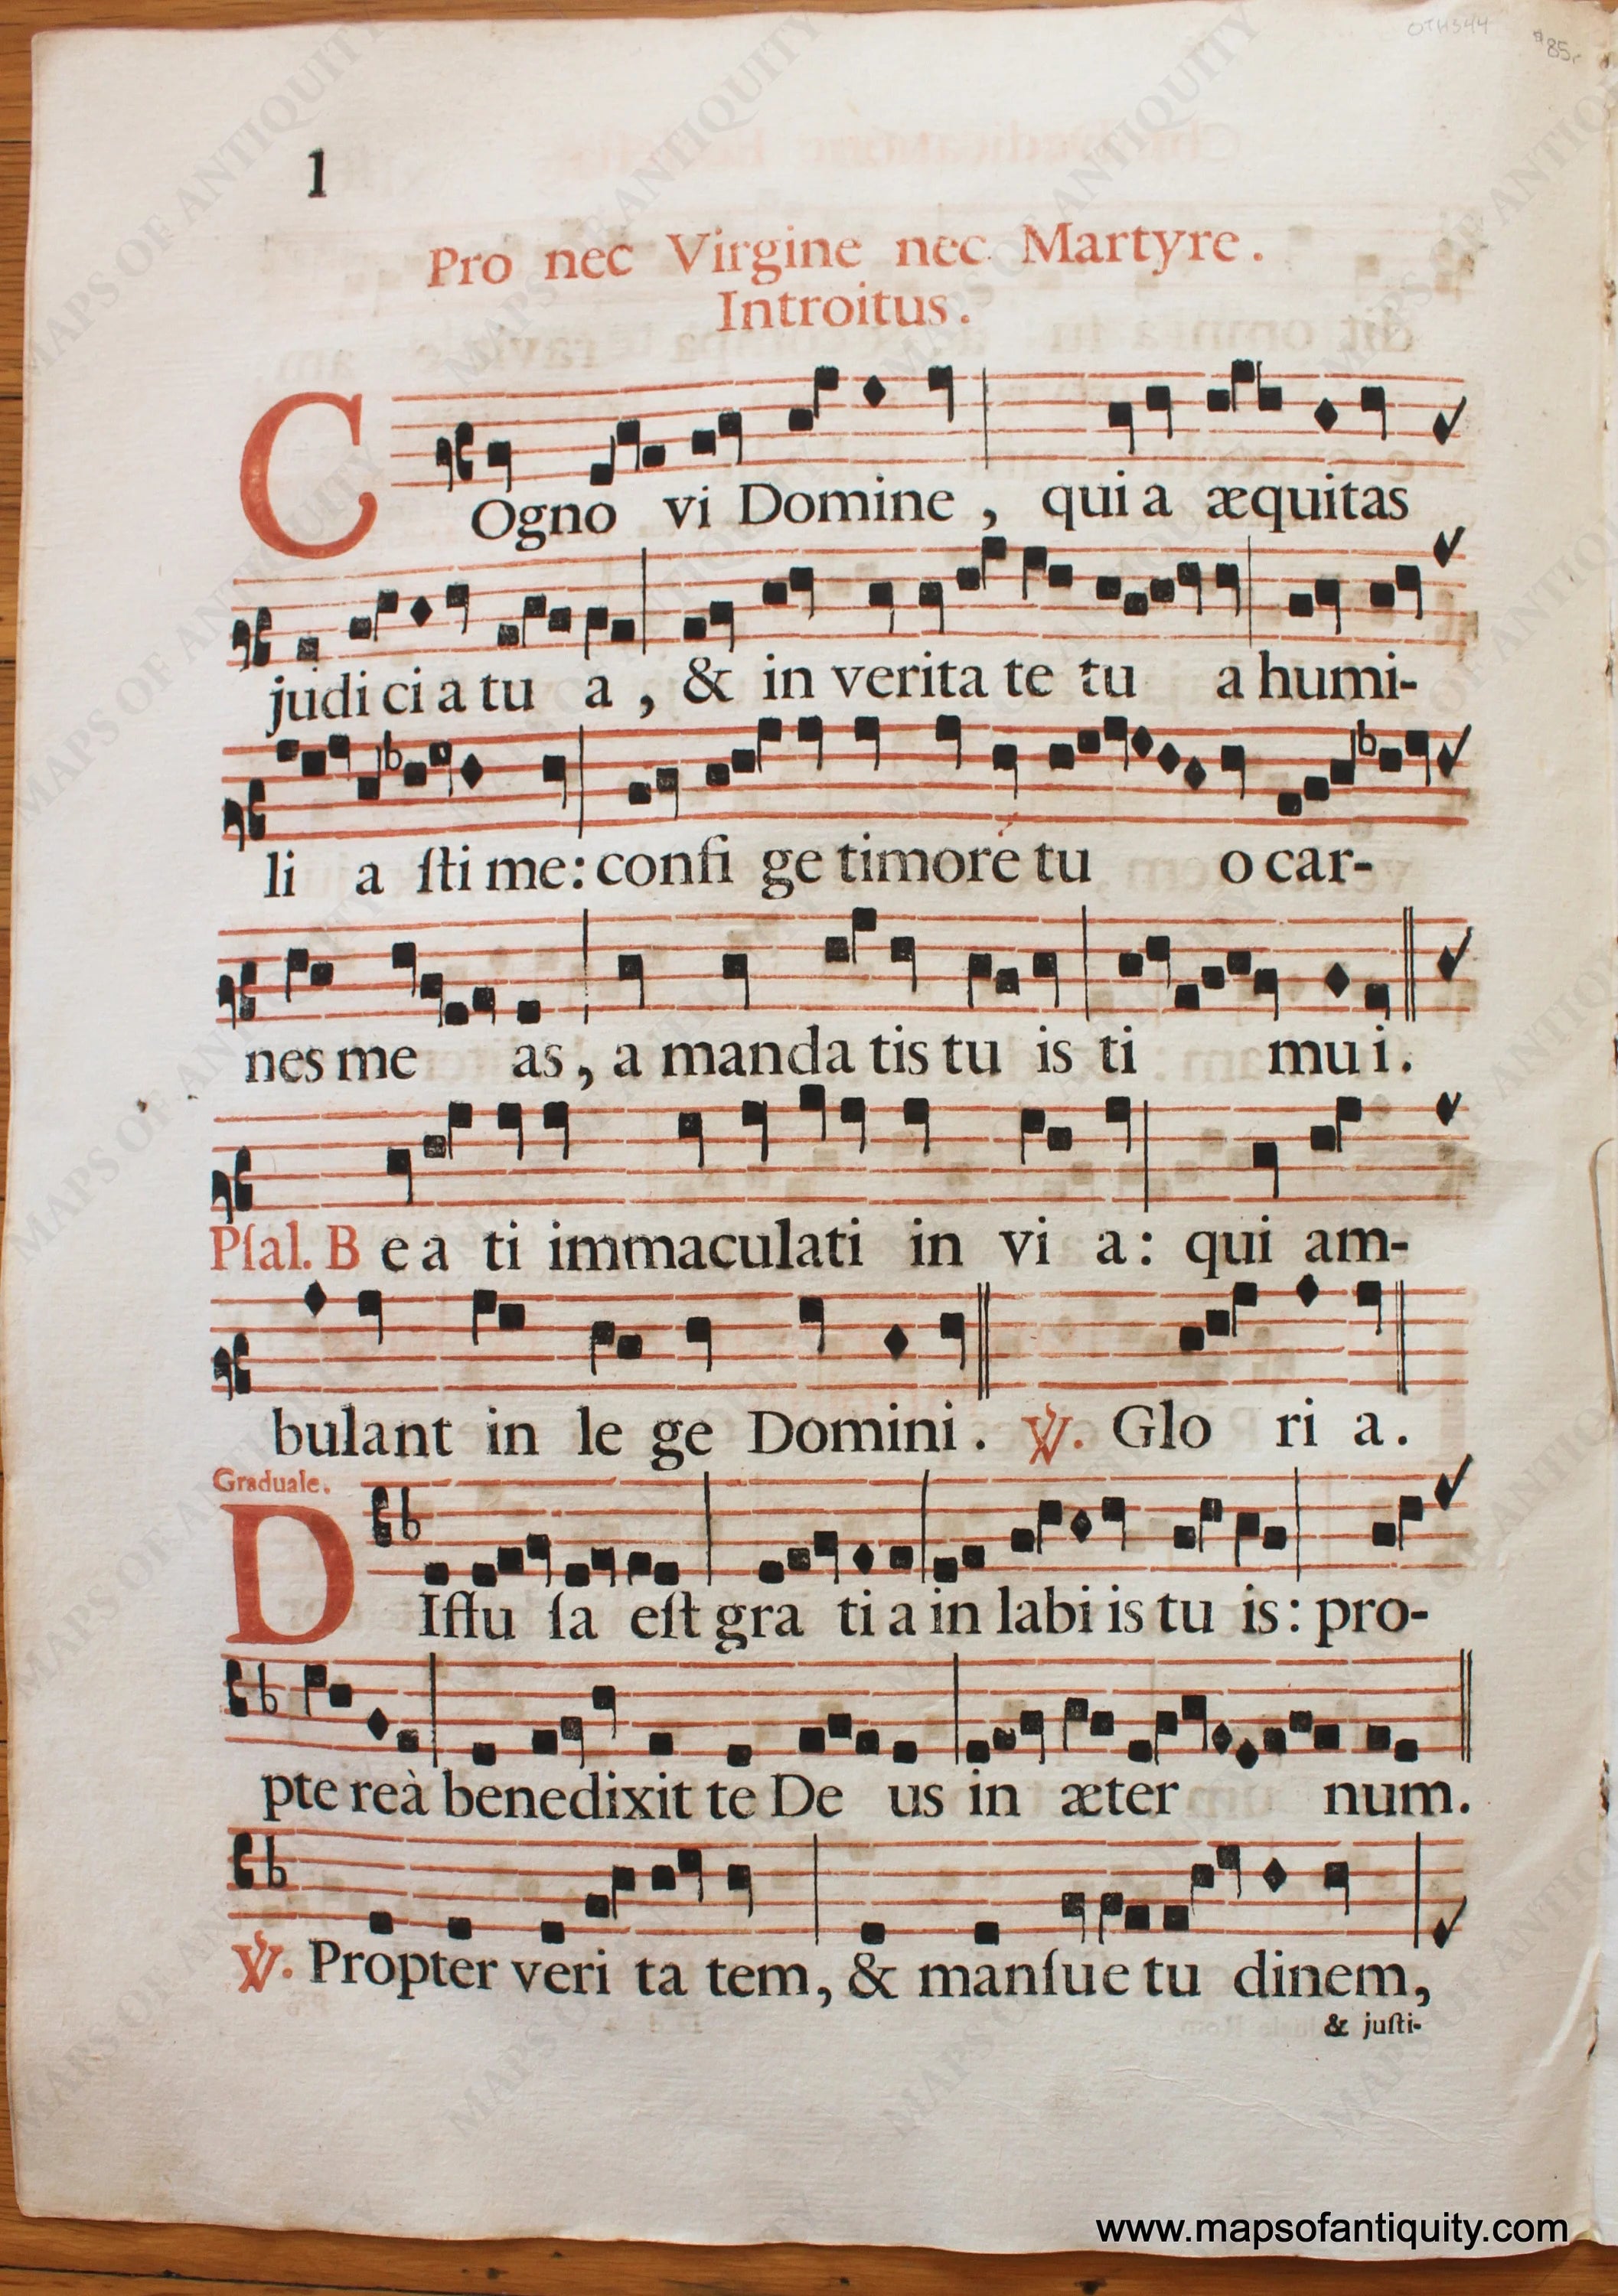 OTHS44
$85.
1
Pro nec Virgine nec Martyre.
Introitus.
COgno vi Domine, qui a æquitas
judi ci a tu a, & in verita te tu a humi-
li a ſti me: confi ge timore tu o car-
nes me as, a manda tis tu is ti mu i.
Pſal. B e a ti immaculati in vi a: qui am-
bulant in le ge Domini. ℣. Glo ri a.
Graduale.
DIffu ſa eſt gra ti a in labi is tu is: pro-
pte reà benedixit te De us in æter num.
℣. Propter veri ta tem, & manſue tu dinem,
& juſti-
www.mapsofantiquity.com